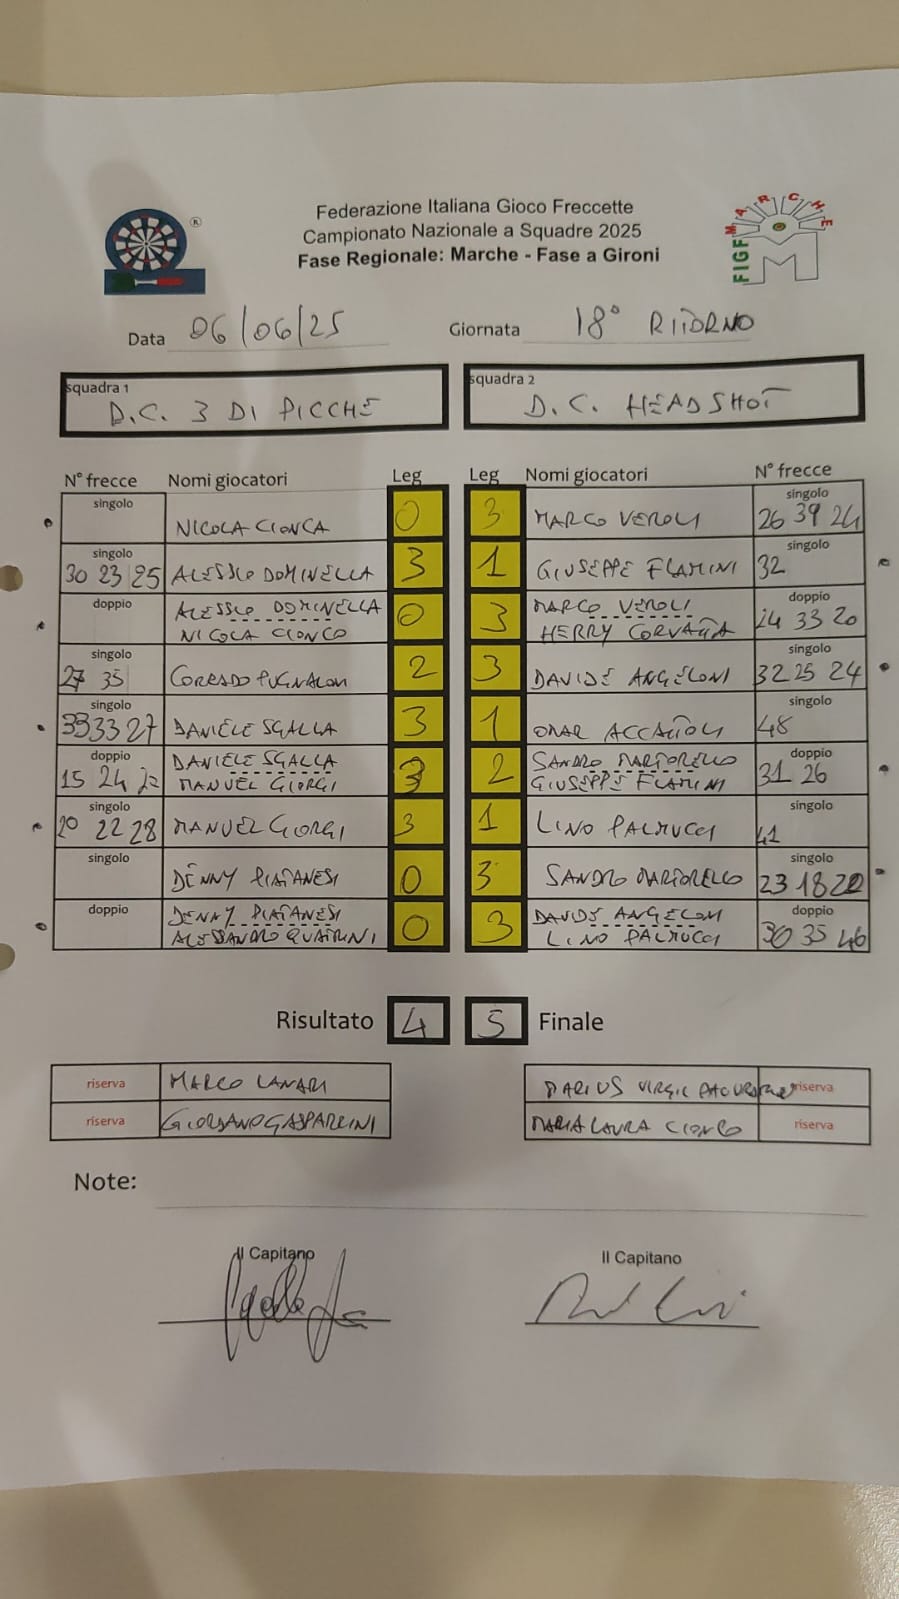 ®
MARCHE
FIGF
M
Federazione Italiana Gioco Freccette
Campionato Nazionale a Squadre 2025
Fase Regionale: Marche - Fase a Gironi
Data 06/06/25 Giornata 18° RITORNO
squadra 1 squadra 2
D.C. 3 DI PICCHE D.C. HEADSHOT
N° frecce Nomi giocatori Leg Leg Nomi giocatori N° frecce
singolo singolo
NICOLA CIONCA 0 3 MARCO VEROLI 26 39 24
singolo singolo
30 23 25 ALESSIO DOMINELLA 3 1 GIUSEPPE FLAMINI 32
doppio ALESSIO DOMINELLA 0 3 MARCO VEROLI doppio
NICOLA CIONCO HERRY CORVATTA 24 33 20
singolo singolo
27 35 CORRADO PUGNALONI 2 3 DAVIDE ANGELONI 32 25 24
singolo singolo
33 33 27 DANIELE SGALLA 3 1 OMAR ACCATTOLI 48
doppio DANIELE SGALLA 3 2 SANDRO MARTORELLO doppio
15 24 MANUEL GIORGI GIUSEPPE FLAMINI 31 26
singolo singolo
20 22 28 MANUEL GIORGI 3 1 LINO PALMUCCI 41
singolo singolo
DENNY PIATANESI 0 3 SANDRO MARTORELLO 23 18 22
doppio DENNY PIATANESI 0 3 DAVIDE ANGELONI doppio
ALESSANDRO QUATRINI LINO PALMUCCI 30 35 46
Risultato 4 5 Finale
riserva MARCO LANARI MARIUS VIRGIL riserva
riserva GIORDANO GASPARRINI MARIA LAURA CIONCO riserva
Note:
Il Capitano Il Capitano